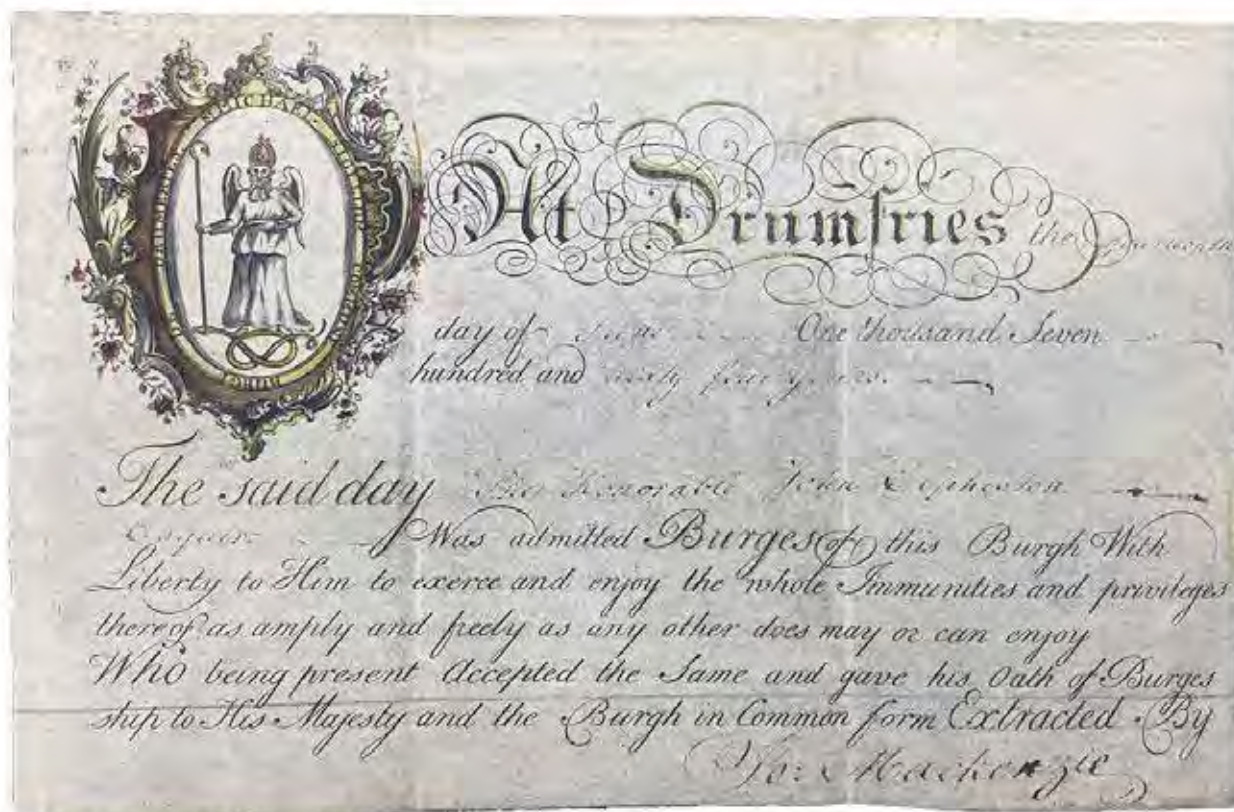 MICHAEL
At Drumfries the
day of One thousand Seven
hundred and sixty four years
The said day The Honorable John
Esquire Was admitted Burges of this Burgh With
Liberty to Him to exerce and enjoy the whole Immunities and privileges
thereof as amply and freely as any other does may or can enjoy
Who being present Accepted the Same and gave his Oath of Burges
ship to His Majesty and the Burgh in Common form Extracted By
Mackenzie